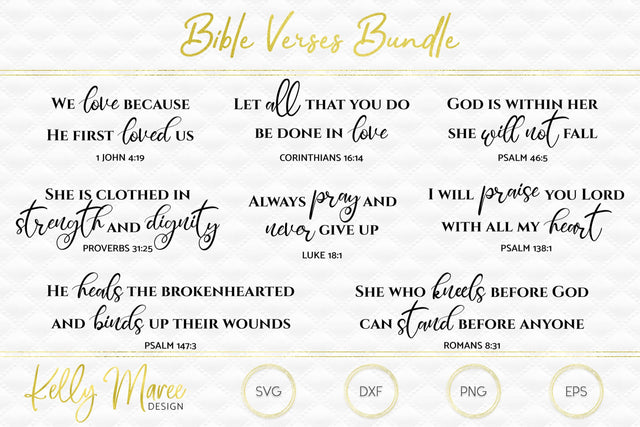 Bible Verses Bundle
We love because
He first loved us
1 John 4:19
Let all that you do
be done in love
Corinthians 16:14
God is within her
she will not fall
Psalm 46:5
She is clothed in
strength and dignity
Proverbs 31:25
Always pray and
never give up
Luke 18:1
I will praise you Lord
with all my heart
Psalm 138:1
He heals the brokenhearted
and binds up their wounds
Psalm 147:3
She who kneels before God
can stand before anyone
Romans 8:31
Kelly Maree
DESIGN
SVG
DXF
PNG
EPS